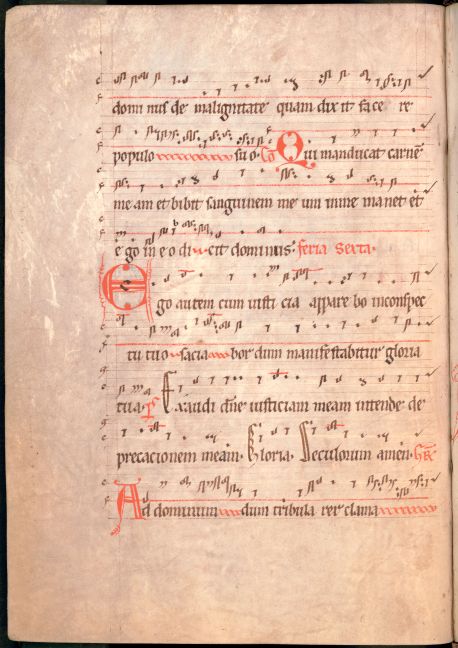 domi nus de malignitate quam dixit face re
populo suo. Co Qui manducat carnē
me am et bibit sanguinem me um in me manet et
e go in e o di cit dominus. feria sexta.
Ego autem cum iusti cia appare bo in conspec
tu tuo sacia bor dum manifestabitur gloria
tua. ps Exaudi dn̄e iusticiam meam intende de
precacionem meam. Gloria. Seculorum amen.
Ad dominum dum tribula rer clama